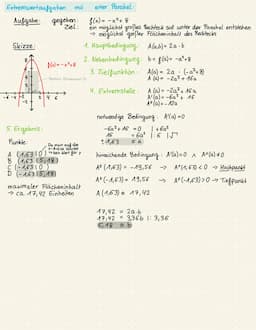 Extremwertaufgaben mit einer Parabel
Aufgabe: gegeben f(x) = -x²+8
Ziel: ein möglichst großes Rechteck soll unter der Parabel entstehen
→ möglichst großer Flächeninhalt des Rechtecks
Skizze:
f(x) = -x²+8
1. Hauptbedingung: A(a,b) = 2a · b
2. Nebenbedingung: b = f(a) = -a²+8
3. Zielfunktion: A(a) = 2a · (-a²+8)
A(a) = -2a³+16a
4. Extremstelle: A(a) = -2a³+16a
A'(a) = -6a²+16
A''(a) = -12a
notwendige Bedingung: A'(a) = 0
-6a²+16 = 0 | +6a²
16 = 6a² | :6 | √
±1,63 = a
hinreichende Bedingung: A'(a) = 0 ∧ A''(a) ≠ 0
A''(1,63) = -19,56 → A''(1,63) < 0 → Hochpunkt
A''(-1,63) = 19,56 → A''(-1,63) > 0 → Tiefpunkt
A(1,63) = 17,42
5. Ergebnis:
Punkte:
A (1,63|0)
B (1,63|5,18)
C (-1,63|0)
D (-1,63|5,18)
maximaler Flächeninhalt
→ ca. 17,42 Einheiten
17,42 = 2a·b
17,42 = 3,36b | : 3,36
5,18 = b